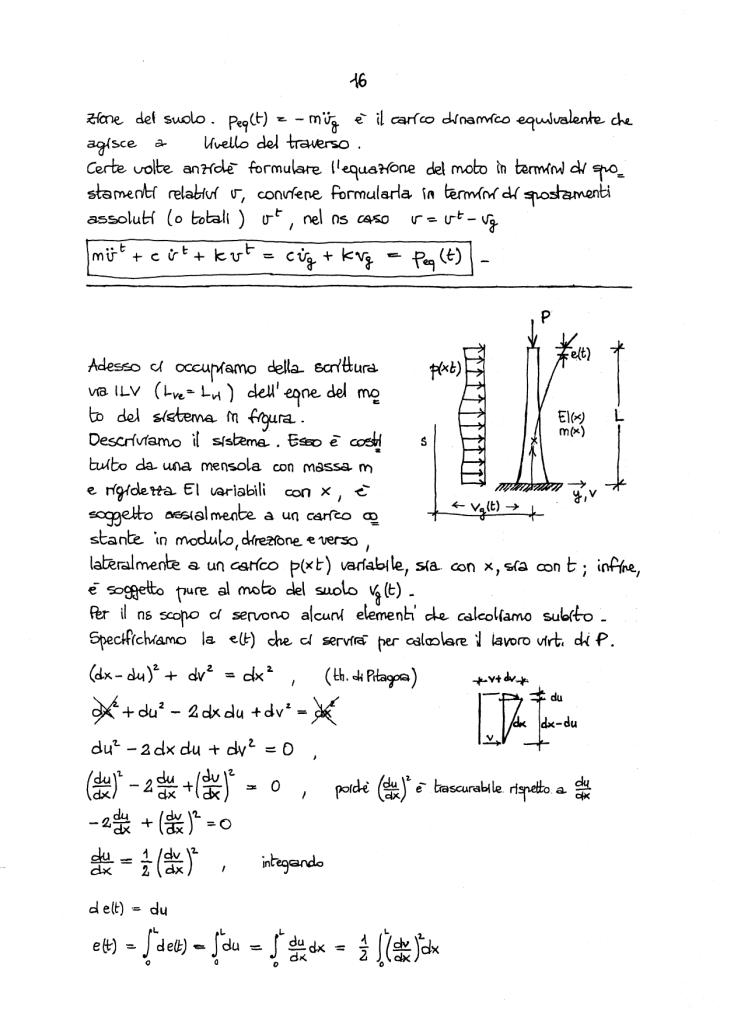 16
zione del suolo. p_eq(t) = - m v̈_g è il carico dinamico equivalente che
agisce a livello del traverso.
Certe volte anzichè formulare l'equazione del moto in termini di spo=
stamenti relativi v, conviene formularla in termini di spostamenti
assoluti (o totali) v^t, nel ns caso v = v^t - v_g
m v̈^t + c v̇^t + k v^t = c v̇_g + k v_g = p_eq(t) -
Adesso ci occupiamo della scrittura
via ILV (L_ve = L_vi) dell'eqne del mo
to del sistema in figura.
Descriviamo il sistema. Esso è costi
tuito da una mensola con massa m
e rigidezza EI variabili con x, è
soggetto assialmente a un carico co
stante in modulo, direzione e verso,
lateralmente a un carico p(xt) variabile, sia con x, sia con t; infine,
è soggetto pure al moto del suolo v_g(t).
P
p(xt)
e(t)
EI(x)
m(x)
L
s
x
y, v
v_g(t)
Per il ns scopo ci servono alcuni elementi che calcoliamo subito.
Specifichiamo la e(t) che ci servirà per calcolare il lavoro virt. di P.
(dx-du)² + dv² = dx² , (th. di Pitagora)
dx² + du² - 2dx du + dv² = dx²
du² - 2dx du + dv² = 0 ,
v+dv
du
dx
dx-du
v
(du/dx)² - 2 du/dx + (dv/dx)² = 0 , poichè (du/dx)² è trascurabile rispetto a du/dx
-2 du/dx + (dv/dx)² = 0
du/dx = 1/2 (dv/dx)² , integando
de(t) = du
e(t) = ∫₀ᴸ de(t) = ∫₀ᴸ du = ∫₀ᴸ du/dx dx = 1/2 ∫₀ᴸ (dv/dx)² dx